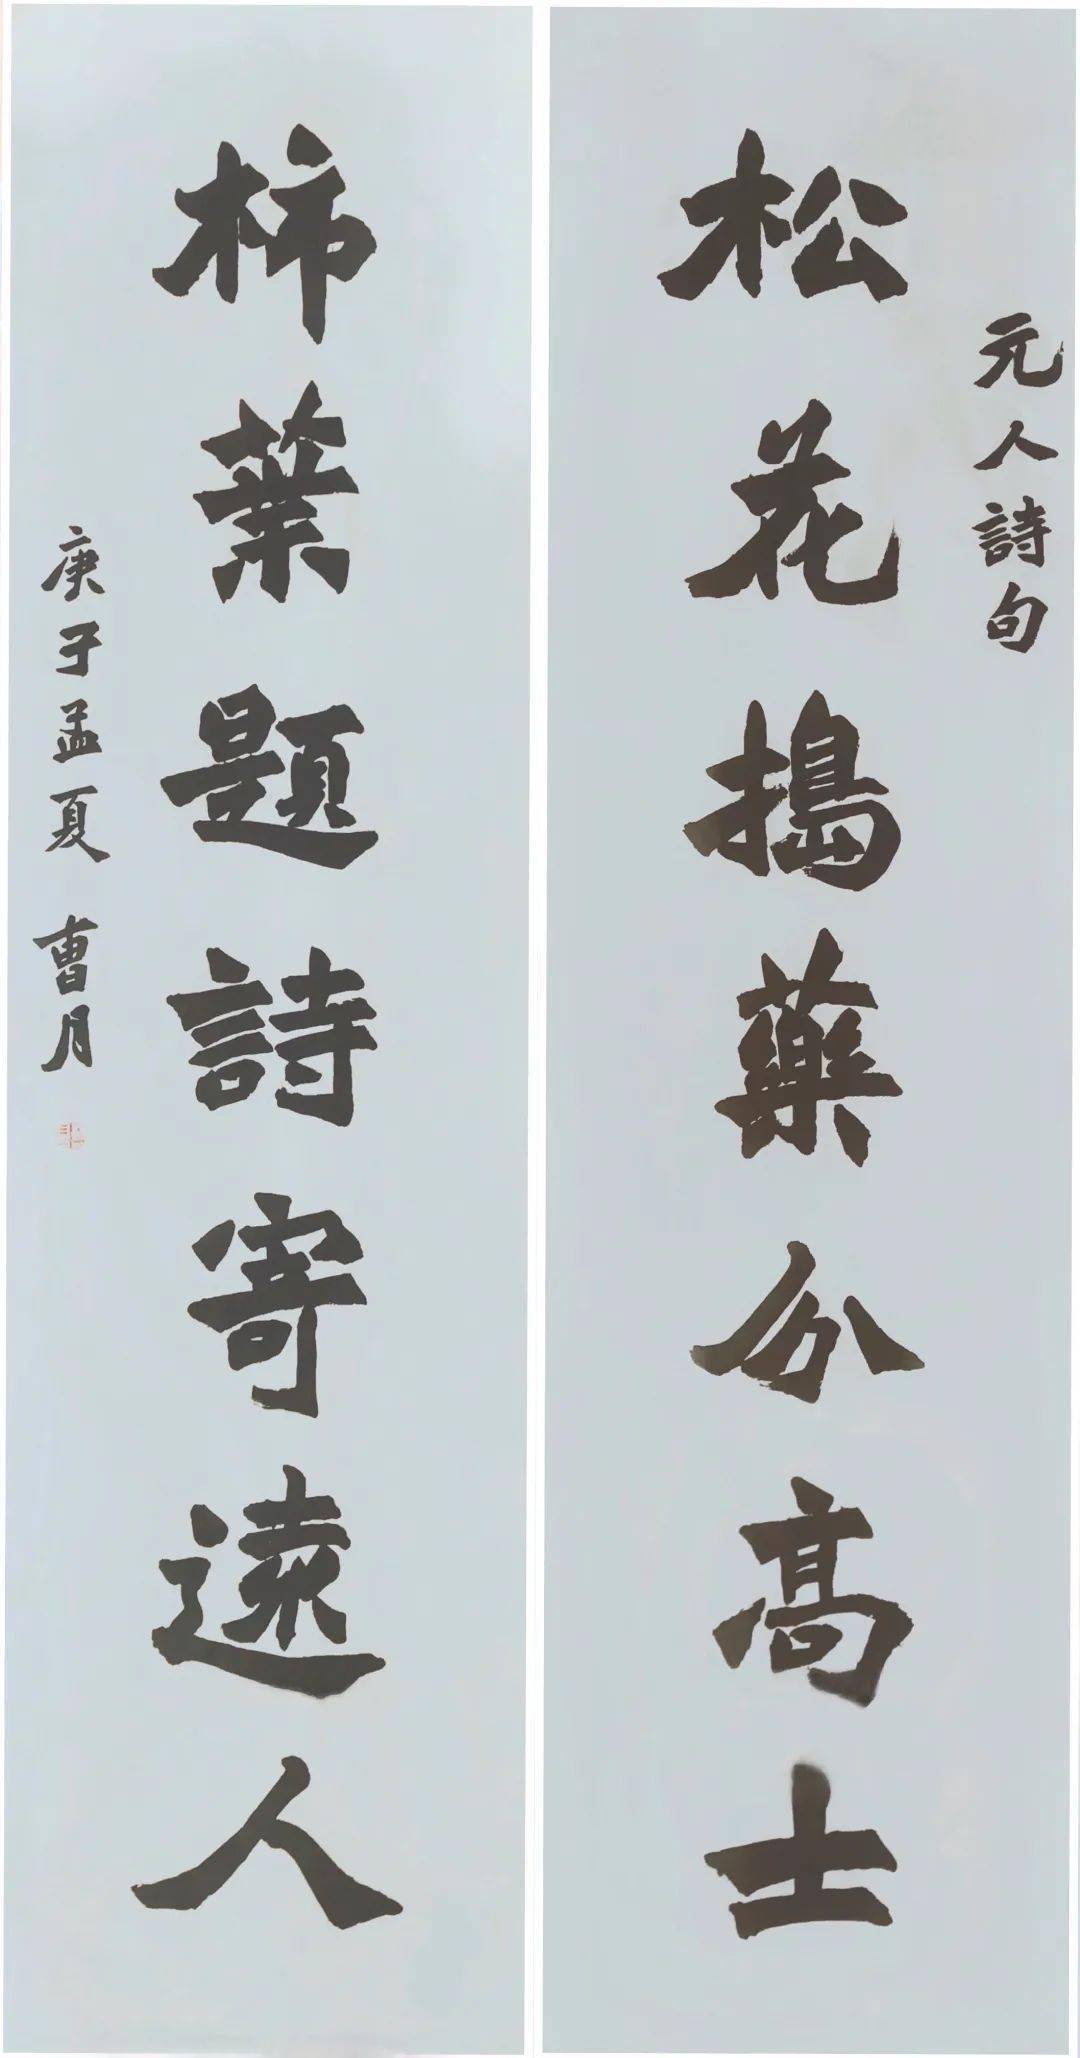 元人詩句
松花搗藥分高士
柿葉題詩寄遠人
庚子孟夏 曹月